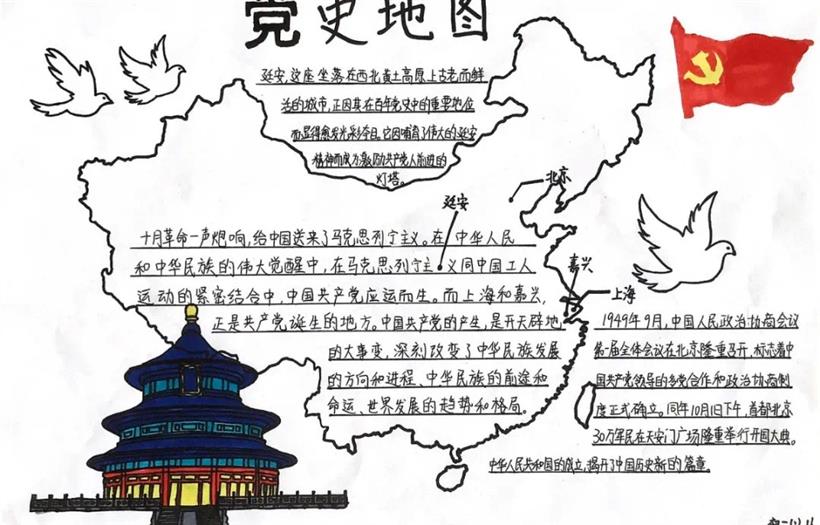 党史地图
延安,这座坐落在西北黄土高原上古老而鲜
活的城市,正因其在百年党史中的重要地位
而显得愈发光彩夺目,它因哺育了伟大的延安
精神而成为激励共产党人前进的
灯塔。
北京
延安
十月革命一声炮响,给中国送来了马克思列宁主义。在中华人民
和中华民族的伟大觉醒中,在马克思列宁主义同中国工人
运动的紧密结合中,中国共产党应运而生。而上海和嘉兴,
正是共产党诞生的地方。中国共产党的产生,是开天辟地
的大事变,深刻改变了中华民族发展
的方向和进程、中华民族的前途和
命运、世界发展的趋势和格局。
嘉兴
上海
1949年9月,中国人民政治协商会议
第一届全体会议在北京隆重召开,标志着中
国共产党领导的多党合作和政治协商制
度正式确立。同年10月1日下午,首都北京
30万军民在天安门广场隆重举行开国大典。
中华人民共和国的成立,揭开了中国历史新的篇章。